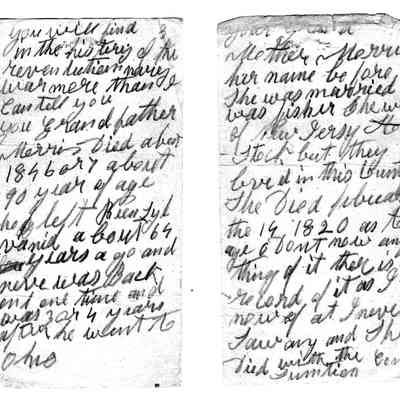 you will find
in the history of the
revendutionnarey
war more than I
Can tell you
you Grand father
Merris Died about
1846 or 7 about
90 year of age
he left Pennsyl
vania about 64
years ago and
never was Back
and one time and
was 3 or 4 years
after he went to
ohio
your
Mother Merris
her name before
She was married
was fisher She w
of new Jersy
Stock but they
lived in this Coun
She Died februar
the 14 1820 as to
age I dont now any
thing of it ther is
record of it as I
now of at I neve
Saw any and She
Died with the Con
Sumtion